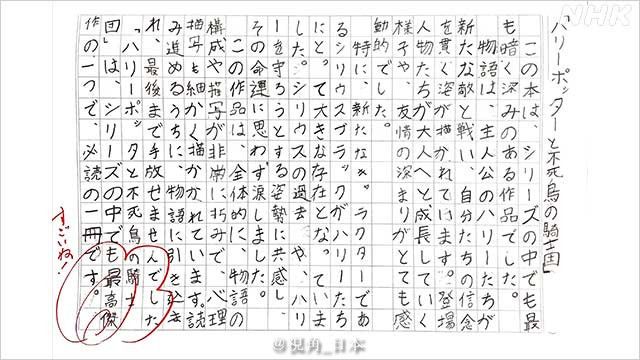 「ハリーポッターと不死鳥の騎士団」
この本は、シリーズの中でも最
も暗く深みのある作品でした。
物語は、主人公のハリーたちが
新たな敵と戦い、自分たちの信念
を貫く姿が描かれています。登場
人物たちが大人へと成長していく
様子や、友情の深まりがとても感
動的でした。
特に、新たなキャラクターであ
るシリウスブラックがハリーたち
にとって大きな存在となっていま
した。シリウスの過去や、ハリ
ーを守ろうとする姿勢に共感し、
その命運に思わず涙しました。
この作品は、全体的に、物語の
構成や描写が非常に巧みで、心理
描写も細かく描かれています。読
み進めるうちに、物語に引き込ま
れ、最後まで手放せませんでした。
「ハリーポッターと不死鳥の騎士
団」は、シリーズの中でも最高傑
作の一つで、必読の一冊です。
すごいね！
NHK
@視角_日本